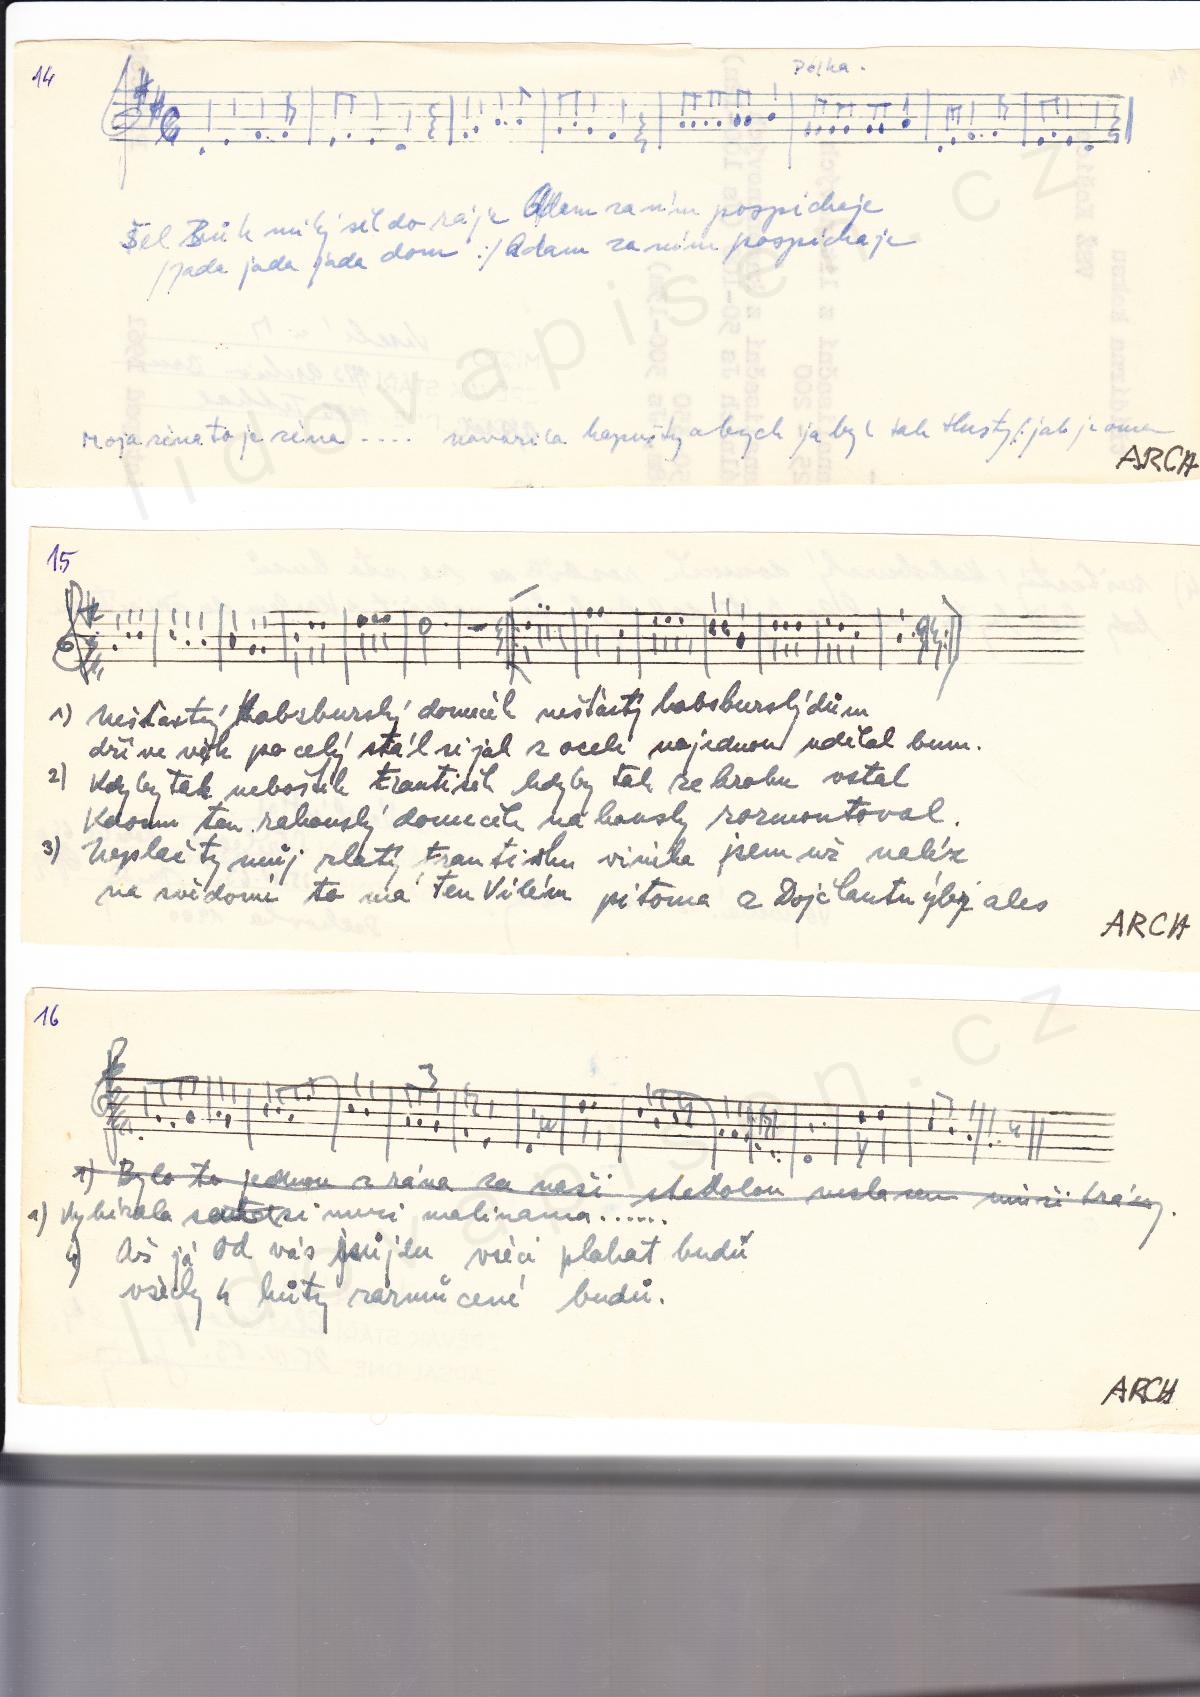 14
Polka.
Šel Bůh milý šel do ráje Adam za ním pospíchaje
/: jada jada jada dom :/ Adam za ním pospíchaje
Moja žena to je žena .... navařila kapusty abych ja byl tak tlustý jak je ona
ARCH
15
1) Nešťastný Habsburský domeček nešťastný habsburský dům
dříve věk po celý stál si jak z oceli najednou udělal bum.
2) Kdyby tak nebožtík František kdyby tak ze hrobu vstal
ten rakouský domeček na kousky rozmontoval.
3) Neplač ty můj zlatý Františku viníka jsem už naléz
na svědomí to má ten Vilém pitoma z Dojčlantu
ARCH
16
3
1) Bylo to jednou z rána za naší stodolou
1) Vybírala si mezi malinama......
Až já od vás půjdu všeci plakat budú
všecky kúty zarmúcené budú.
ARCH
lidovapisen.cz
lidovapisen.cz